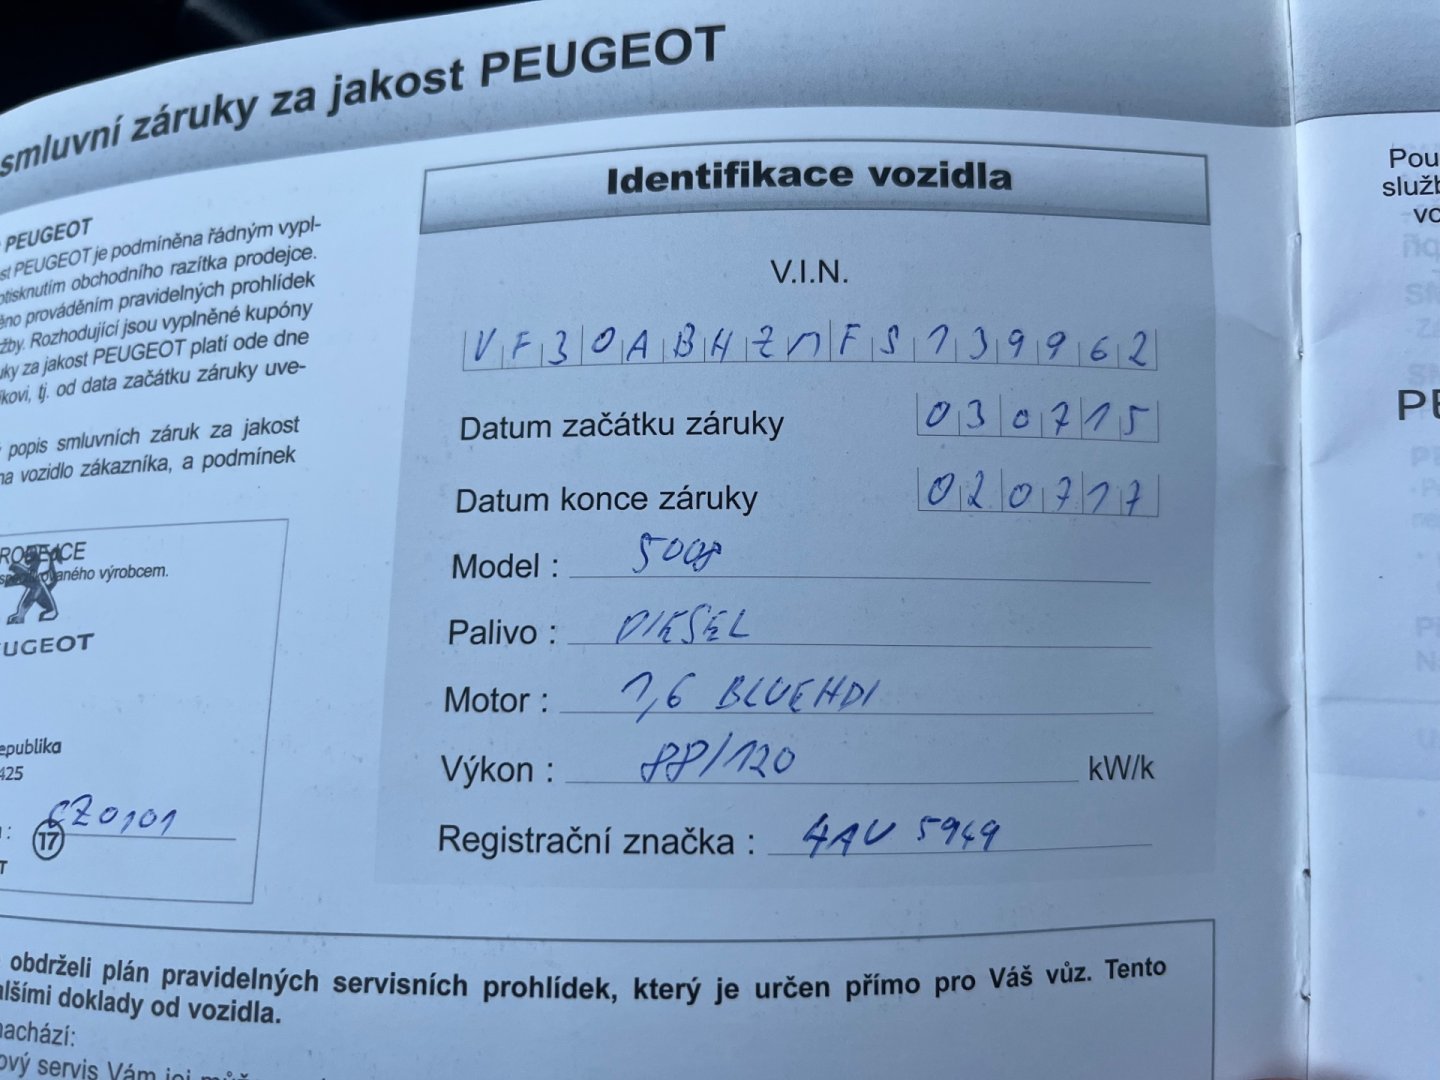 smluvní záruky za jakost PEUGEOT
PEUGEOT
st PEUGEOT je podmíněna řádným vypl-
otisknutím obchodního razítka prodejce.
ěno prováděním pravidelných prohlídek
žby. Rozhodující jsou vyplněné kupóny
uky za jakost PEUGEOT platí ode dne
íkovi, tj. od data začátku záruky uve-
popis smluvních záruk za jakost
na vozidlo zákazníka, a podmínek
RODEJCE
specifikovaného výrobcem.
UGEOT
epublika
425
: CZ0101
17
T
Identifikace vozidla
V.I.N.
VF30ABHZMFS139962
Datum začátku záruky 030715
Datum konce záruky 020717
Model : 5008
Palivo : DIESEL
Motor : 1,6 BLUEHDI
Výkon : 88/120 kW/k
Registrační značka : 4AU 5949
obdrželi plán pravidelných servisních prohlídek, který je určen přímo pro Váš vůz. Tento
alšími doklady od vozidla.
nachází:
ový servis Vám jej
Pou
služb
vo
PE